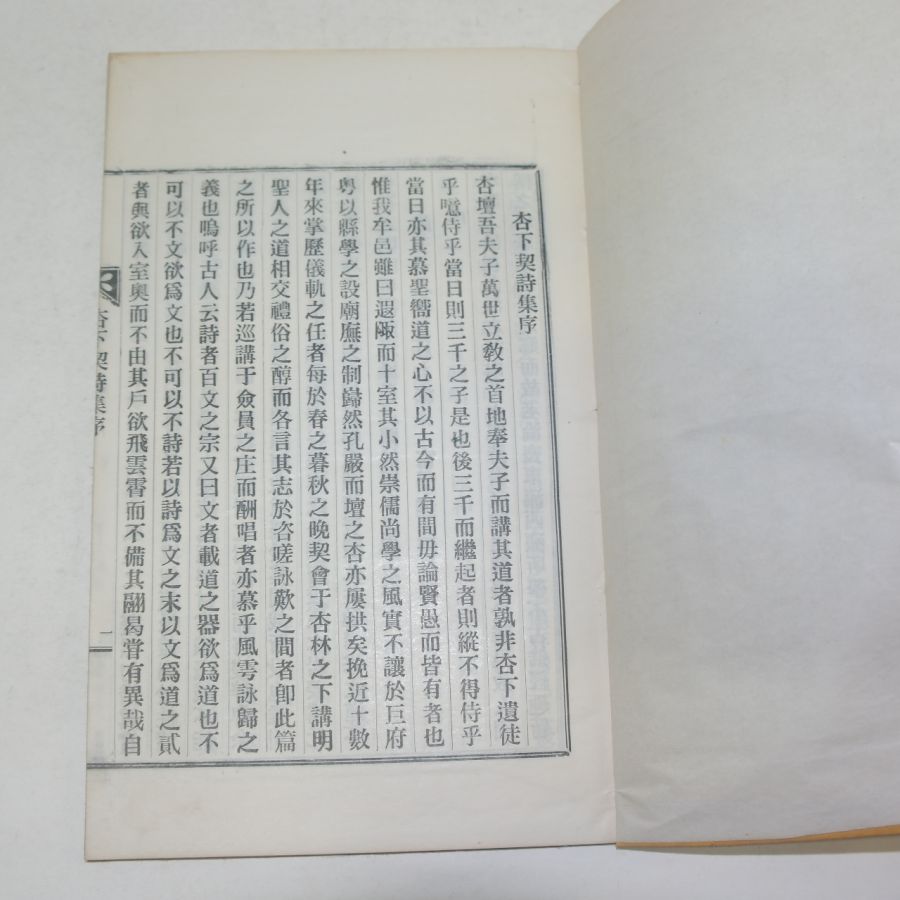 杏下契詩集序
杏壇吾夫子萬世立敎之首地奉夫子而講其道者孰非杏下遺徒
乎噫侍乎當日則三千之子是也後三千而繼起者則縱不得侍乎
當日亦其慕聖嚮道之心不以古今而有間毋論賢愚而皆有者也
惟我牟邑雖曰遐陬而十室其小然崇儒尙學之風實不讓於巨府
粤以縣學之設廟廡之制巋然孔嚴而壇之杏亦屢拱矣挽近十數
年來掌歷儀軌之任者每於春之暮秋之晩契會于杏林之下講明
聖人之道相交禮俗之醇而各言其志於咨嗟詠歎之間者卽此篇
之所以作也乃若巡講于僉員之庄而酬唱者亦慕乎風雩詠歸之
義也嗚呼古人云詩者百文之宗又曰文者載道之器欲爲道也不
可以不文欲爲文也不可以不詩若以詩爲文之末以文爲道之貳
者與欲入室奥而不由其戶欲飛雲霄而不備其翮曷甞有異哉自
杏下契詩集序
一